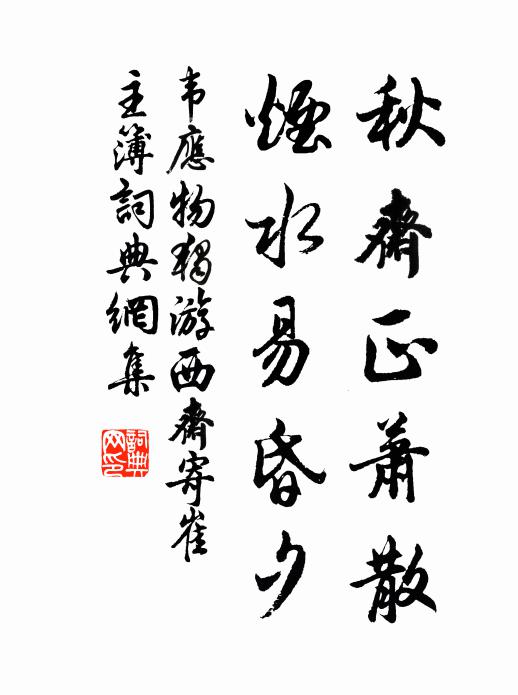 秋齋正蕭散
煙水易昏夕
韦應物獨游西齋寄崔
主簿詞典網集
詞典
网印